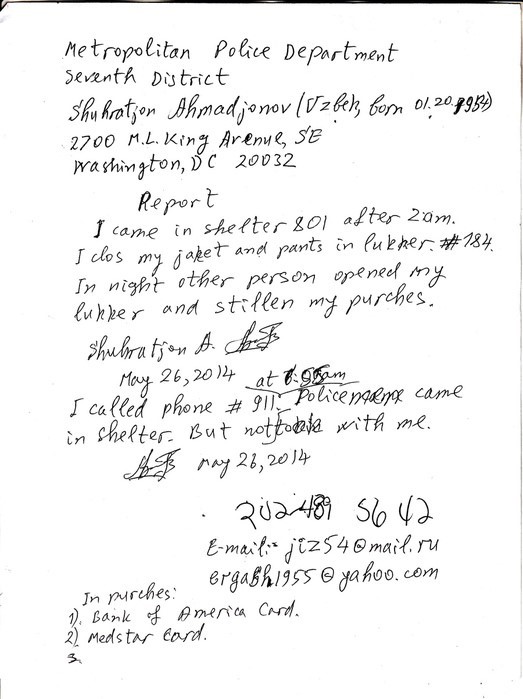 Metropolitan Police Department
Seventh District
Shuhratjon Ahmadjonov (Uzbek, born 01.20.1954)
2700 M.L. King Arenue, SE
Washington, DC 20032
Report
I came in shelter 801 after 2am.
I clos my jaket and pants in lukker. #184.
In night other person opened my
lukker and stillen my purches.
Shuhratjon A.
May 26, 2014 at
I called phone # 911. Police came
in shelter. But not with me.
May 26, 2014
202 489 56 42
E-mail:- jiz54@mail.ru
ergash1955@yahoo.com
In purches:
1). Bank of America Card.
2) Medstar Card.
3.